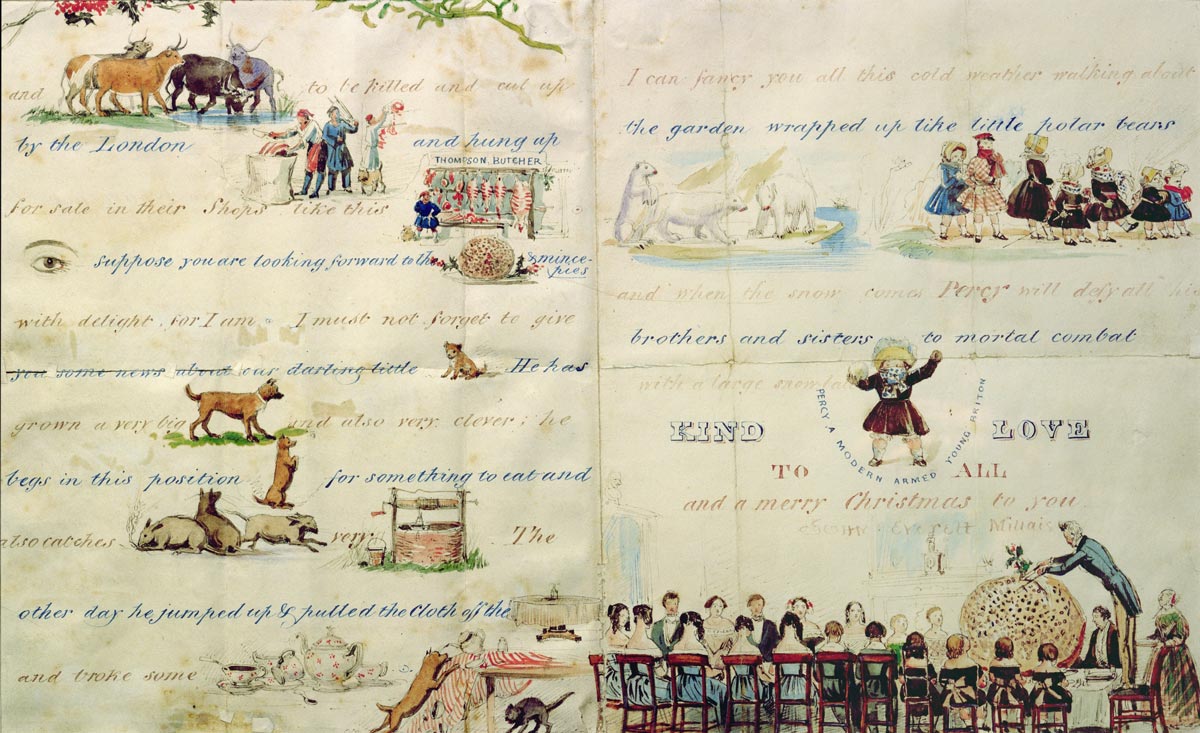 and to be killed and cut up
by the London and hung up
THOMPSON. BUTCHER
for sale in their Shops like this
suppose you are looking forward to the & mince-
pies
with delight, for I am. I must not forget to give
you some news about our darling little He has
grown a very big and also very clever; he
begs in this position for something to eat and
also catches very The
other day he jumped up & pulled the Cloth off the
and broke some
I can fancy you all this cold weather walking about
the garden wrapped up like little polar bears
and when the snow comes Percy will defy all his
brothers and sisters to mortal combat
with a large snow-ball
PERCY, A MODERN ARMED YOUNG BRITON
KIND LOVE
TO ALL
and a merry Christmas to you
Everett Millais